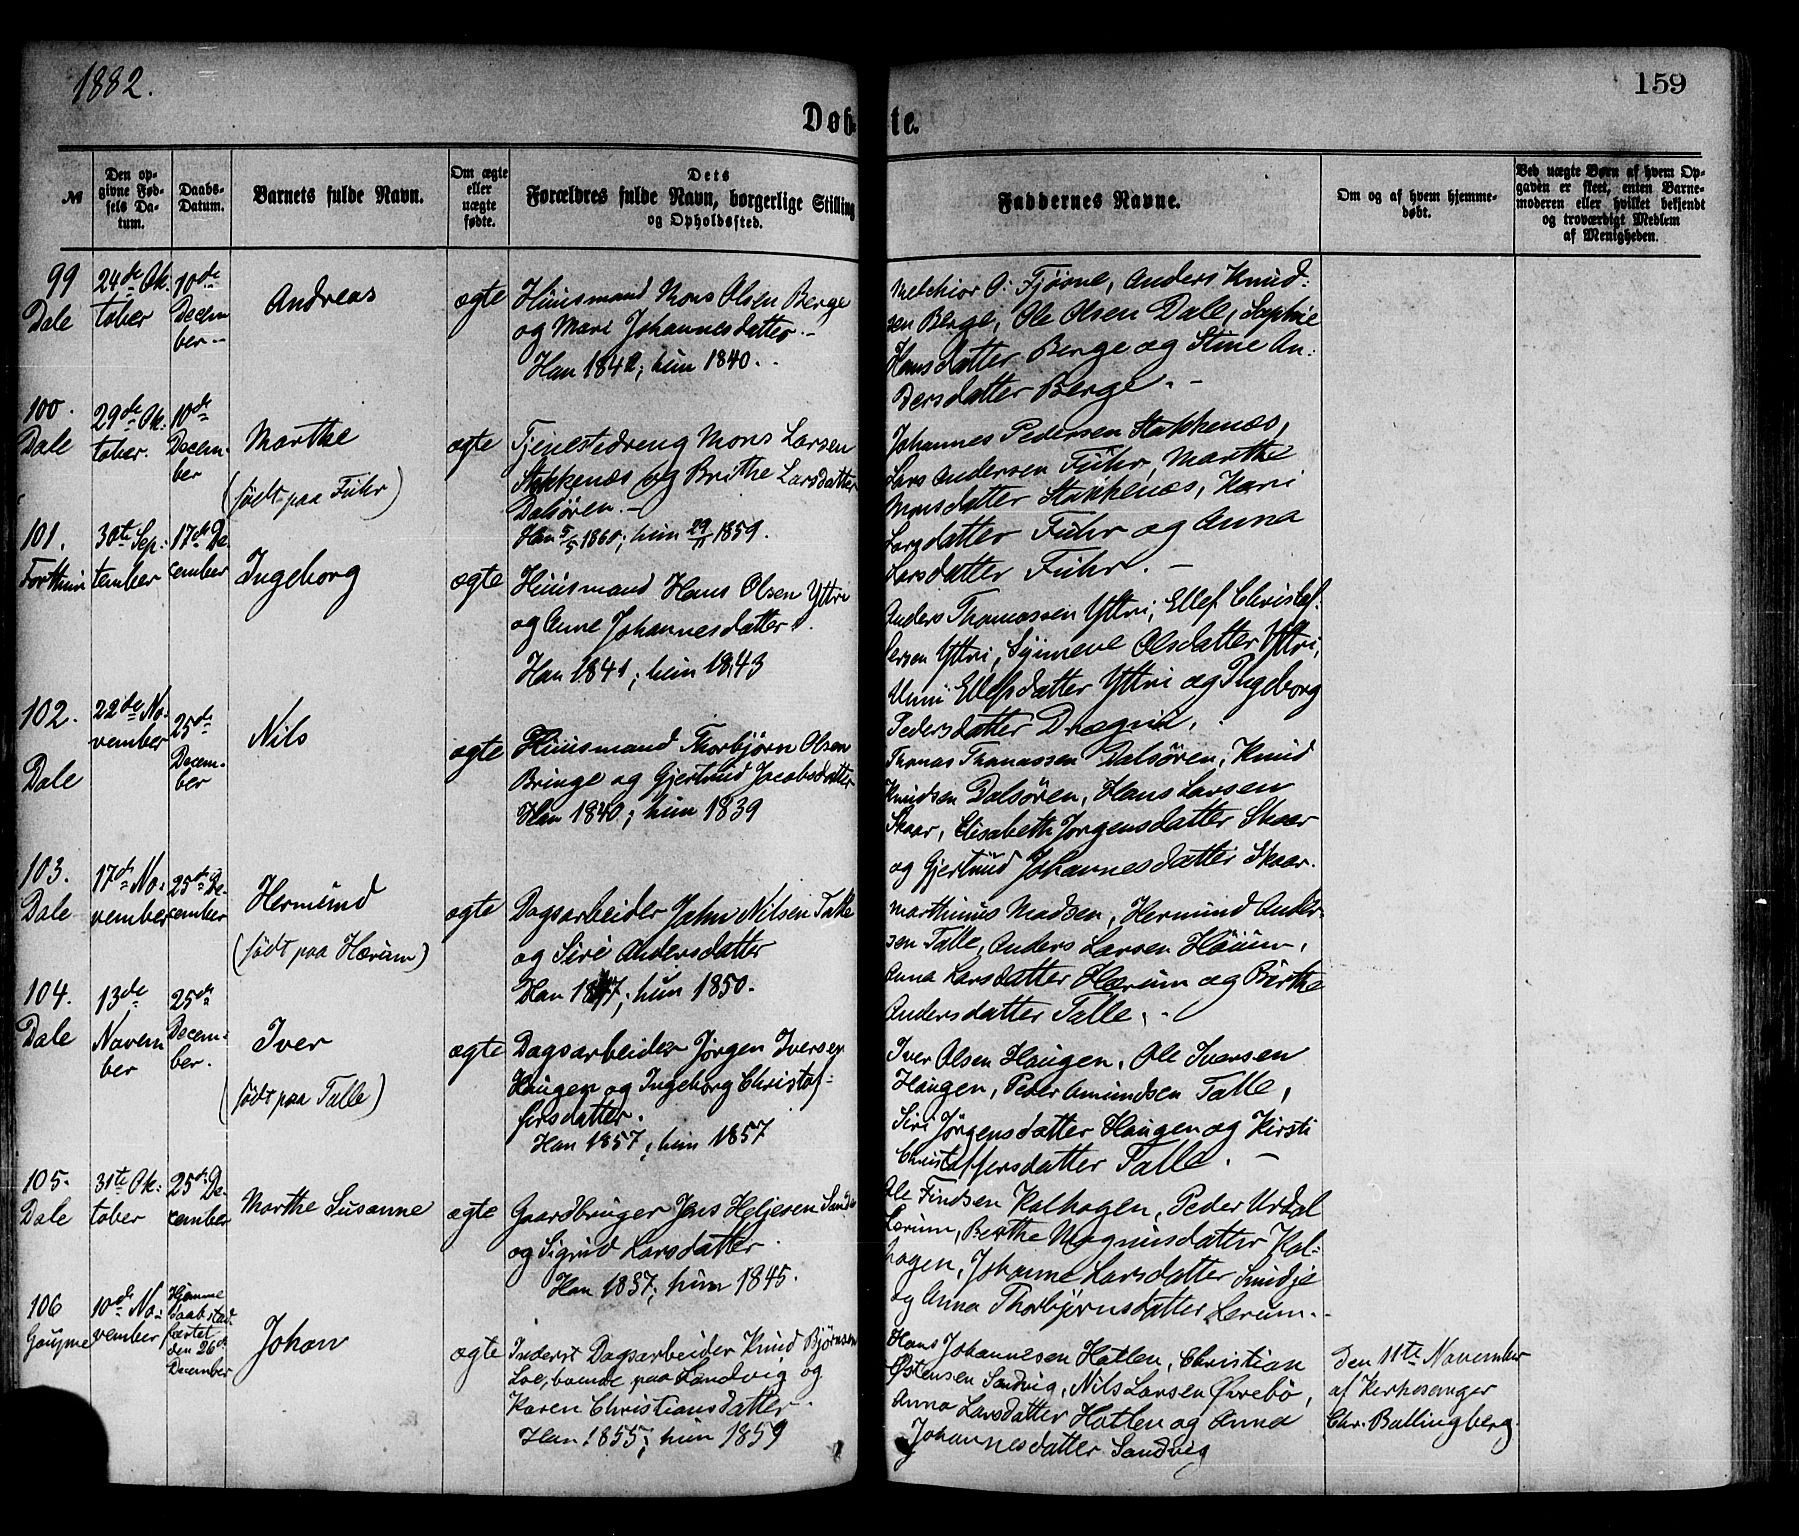 1882.
159
Døbte.
№
Den op-
givne Fød-
sels Da-
tum.
Daabs-
Datum.
Barnets fulde Navn.
Om ægte
eller
uægte
fødte.
Dets
Forældres fulde Navn, borgerlige Stilling
og Opholdssted.
Faddernes Navne.
Om og af hvem hjemme-
døbt.
Ved uægte Børn af hvem Op-
gaven er skeet, enten Barne-
moderen eller hvilket bekjendt
og troværdigt Medlem
af Menigheden.
99
Dale
24de Ok-
tober
10de
Decem
ber
Andreas
ægte
Huusmand Mons Olsen Berge
og Mari Johannesdatter.
Han 1842; hun 1840.
Melchior O. Fjøsne, Anders Knud-
sen Berge, Ole Olsen Dale, Sophie
Hansdatter Berge og Stine An-
dersdatter Berge.
100.
Dale
29de Ok-
tober.
10de
Decem-
ber
Marthe
(født paa Fuhr)
ægte
Tjenestedreng Mons Larsen
Stokkenæs og Brithe Larsdatter
Dalsøren.
Han 5/5 1860; hun 29/11 1859.
Johannes Pedersen Stokkenæs,
Lars Andersen Fuhr, Marthe
Monsdatter Stokkenæs, Kari
Larsdatter Fuhr og Anna
Larsdatter Fuhr.
101.
Forthun
30te Sep-
tember
17de De-
cember
Ingeborg
ægte
Huusmand Hans Olsen Yttri
og Anne Johannesdatter.
Han 1841; hun 1843
Anders Thomassen Yttri, Ellef Christof-
fersen Yttri, Synneve Olsdatter Yttri,
Unni Ellefsdatter Yttri og Ingeborg
Pedersdatter Drægni.
102.
Dale
22de No-
vember
25de
Decem-
ber
Nils
ægte
Huusmand Thorbjørn Olsen
Bringe og Gjertrud Jacobsdatter
Han 1840; hun 1839
Thomas Thomassen Dalsøren, Knud
Knudsen Dalsøren, Hans Larsen
Skaar, Elisabeth Jørgensdatter Skaar
og Gjertrud Johannesdatter Skaar.
103.
Dale
17de No-
vember
25de De-
cember
Hermund
(født paa Hærum)
ægte
Dagsarbeider John Nilsen Talle
og Siri Andersdatter
Han 1847; hun 1850.
Marthinus Madsen, Hermund Ander-
sen Talle, Anders Larsen Høium,
Anna Larsdatter Hærum og Birthe
Andersdatter Talle.
104.
Dale
13de
Novem
ber
25de
Decem-
ber.
Iver
(født paa Talle)
ægte
Dagsarbeider Jørgen Iversen
Haugen og Ingeborg Christof-
fersdatter.
Han 1857; hun 1857
Iver Olsen Haugen, Ole Iversen
Haugen, Peder Amundsen Talle,
Siri Jørgensdatter Haugen og Kirsti
Christoffersdatter Talle.
105.
Dale
31te Ok-
tober
25de De-
cember
Marthe Susanne
ægte
Gaardbruger Jens Heljesen
og Sigrid Larsdatter.
Han 1837; hun 1845.
Ole Findsen Kalhagen, Peder Urdal
Lerum, Berthe Magnusdatter Kal-
hagen, Johanne Larsdatter Smidje
og Anna Thorbjørnsdatter Lerum.
106
Gaupne
10de No-
vember
Hjemme
daab stad-
fæstet
den 26de
December
Johan
ægte
Inderst Dagsarbeider Knud Bjørnsen
Loe, boende paa Sandvig og
Karen Christiansdatter.
Han 1855; hun 1859
Hans Johannesen Hatlen, Christian
Østensen Sandvig, Nils Larsen Øvrebø,
Anna Larsdatter Hatlen og Anna
Johannesdatter Sandvig
den 11te November
af Kirkesanger
Chr. Ballingberg.